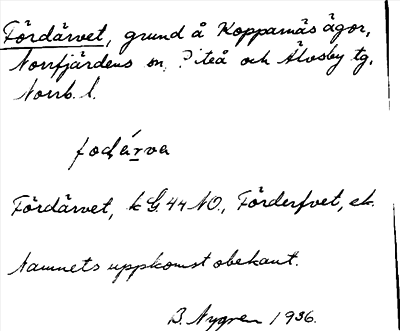 Fördärvet, grund å Kopparnäs ägor,
Norrfjärdens sn, Piteå och Älvsby tg.
Norrb. l.
fodạ́rva
Fördärvet, k G. 44 NO., Förderfvet, ek.
Namnets uppkomst obekant.
B. Nygren 1936.